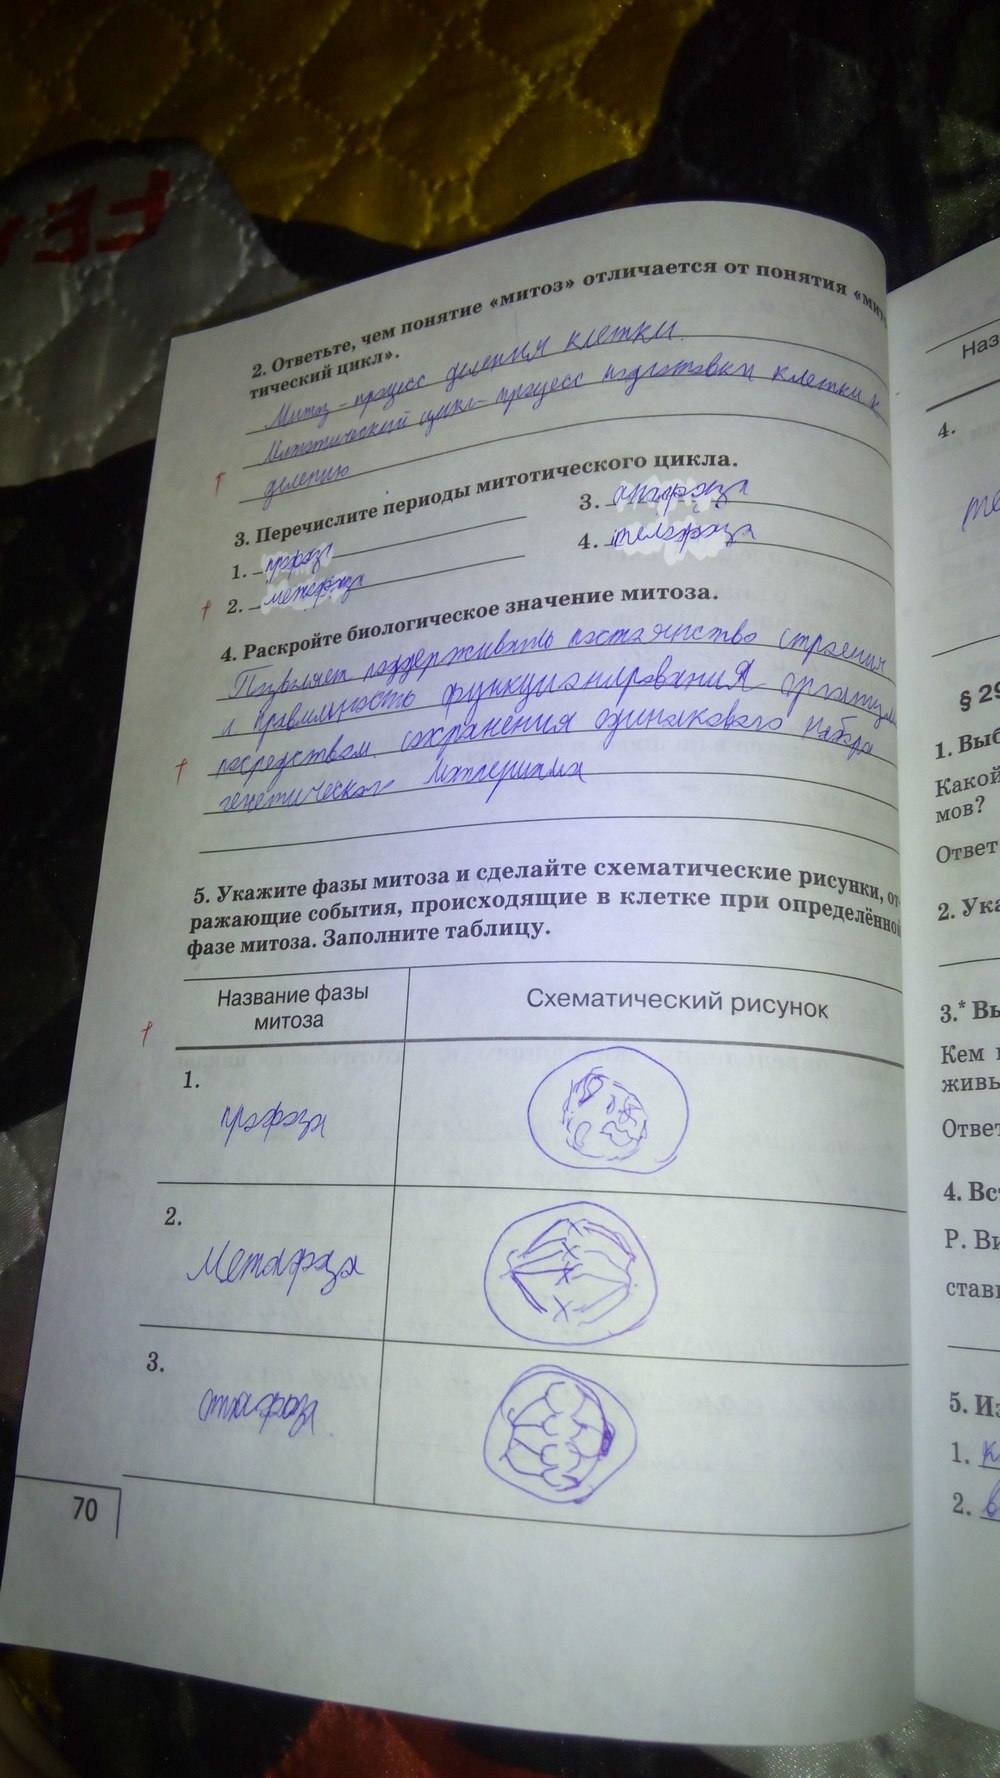 FE
2. Ответьте, чем понятие «митоз» отличается от понятия «мито
тический цикл».
Митоз - процесс деления клетки.
Митотический цикл - процесс подготовки клетки к
делению
3. Перечислите периоды митотического цикла.
1. профаза
2. метафаза
3. анафаза
4. телофаза
4. Раскройте биологическое значение митоза.
Позволяет поддерживать постоянство строения
и правильность функционирования организма
посредством сохранения одинакового набора
генетическог материала
5. Укажите фазы митоза и сделайте схематические рисунки, от
ражающие события, происходящие в клетке при определённой
фазе митоза. Заполните таблицу.
Название фазы
митоза
Схематический рисунок
1.
профаза
2.
Метафаза
3.
анафаза
70
Наз
4.
те
§ 29
1. Выб
Какой
мов?
Ответ
2. Ука
3.* Вы
Кем
живы
Ответ
4. Вст
Р. Ви
стави
5. Из
1. к
2. в